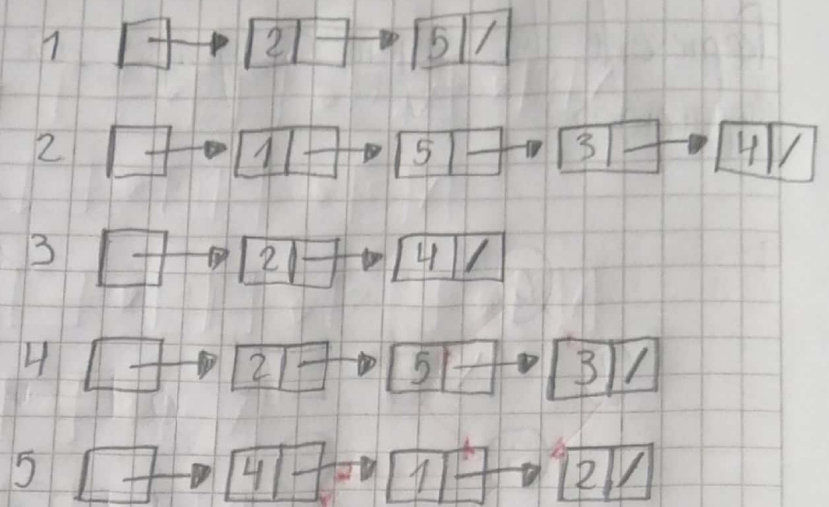 1 2 5 /
2 1 5 3 4 /
3 2 4 /
4 2 5 3 /
5 4 1 2 /